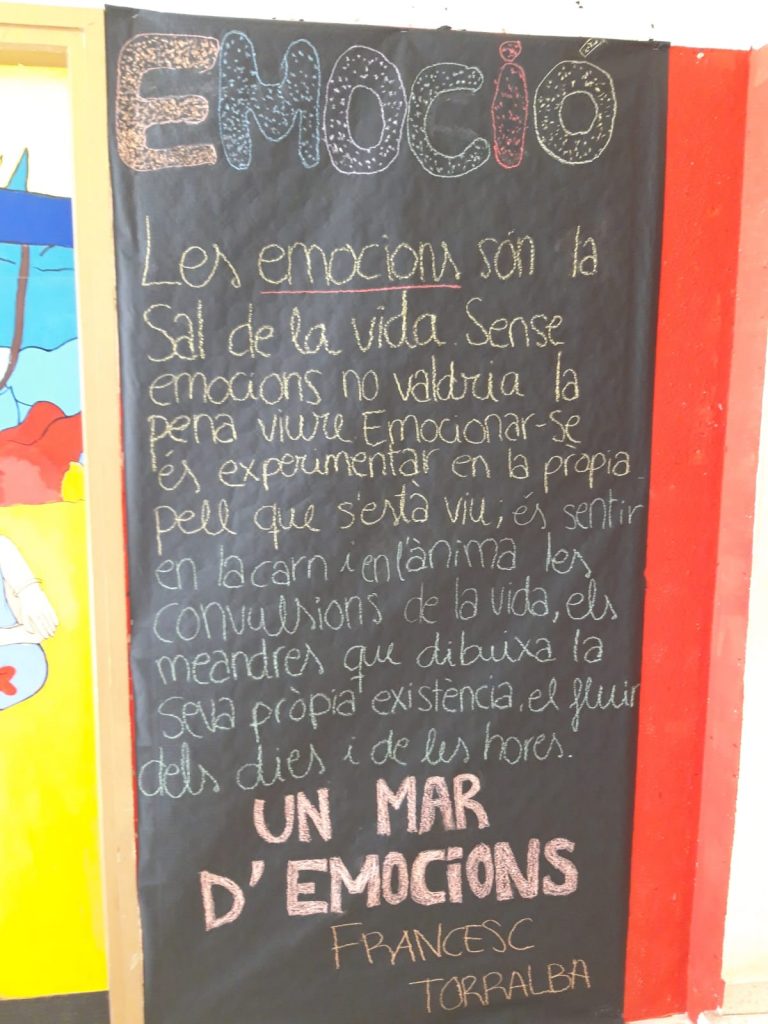 EMOCIÓ
Les emocions són la
Sal de la vida. Sense
emocions no valdria la
pena viure Emocionar-se
és experimentar en la propia
pell que s'està viu; és sentir
en la carn i en l'ànima les
convulsions de la vida, els
meandres que dibuixa la
seva pròpia existència, el fluir
dels dies i de les hores.
UN MAR
D'EMOCIONS
FRANCESC
TORRALBA